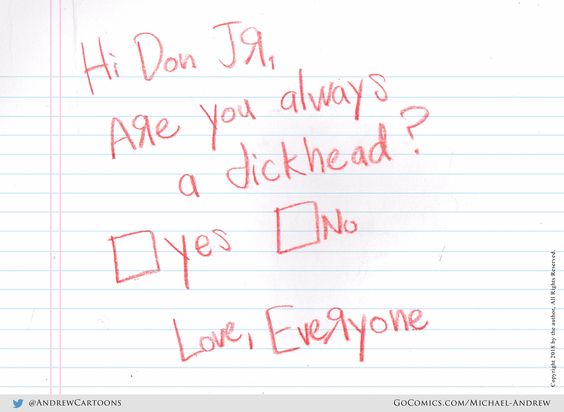 Hi Don JЯ,
AЯe you always
a dickhead?
Yes No
Love, EveЯyone
Copyright 2018 by the author, All Rights Reserved.
@AndrewCartoons GoComics.com/Michael-Andrew